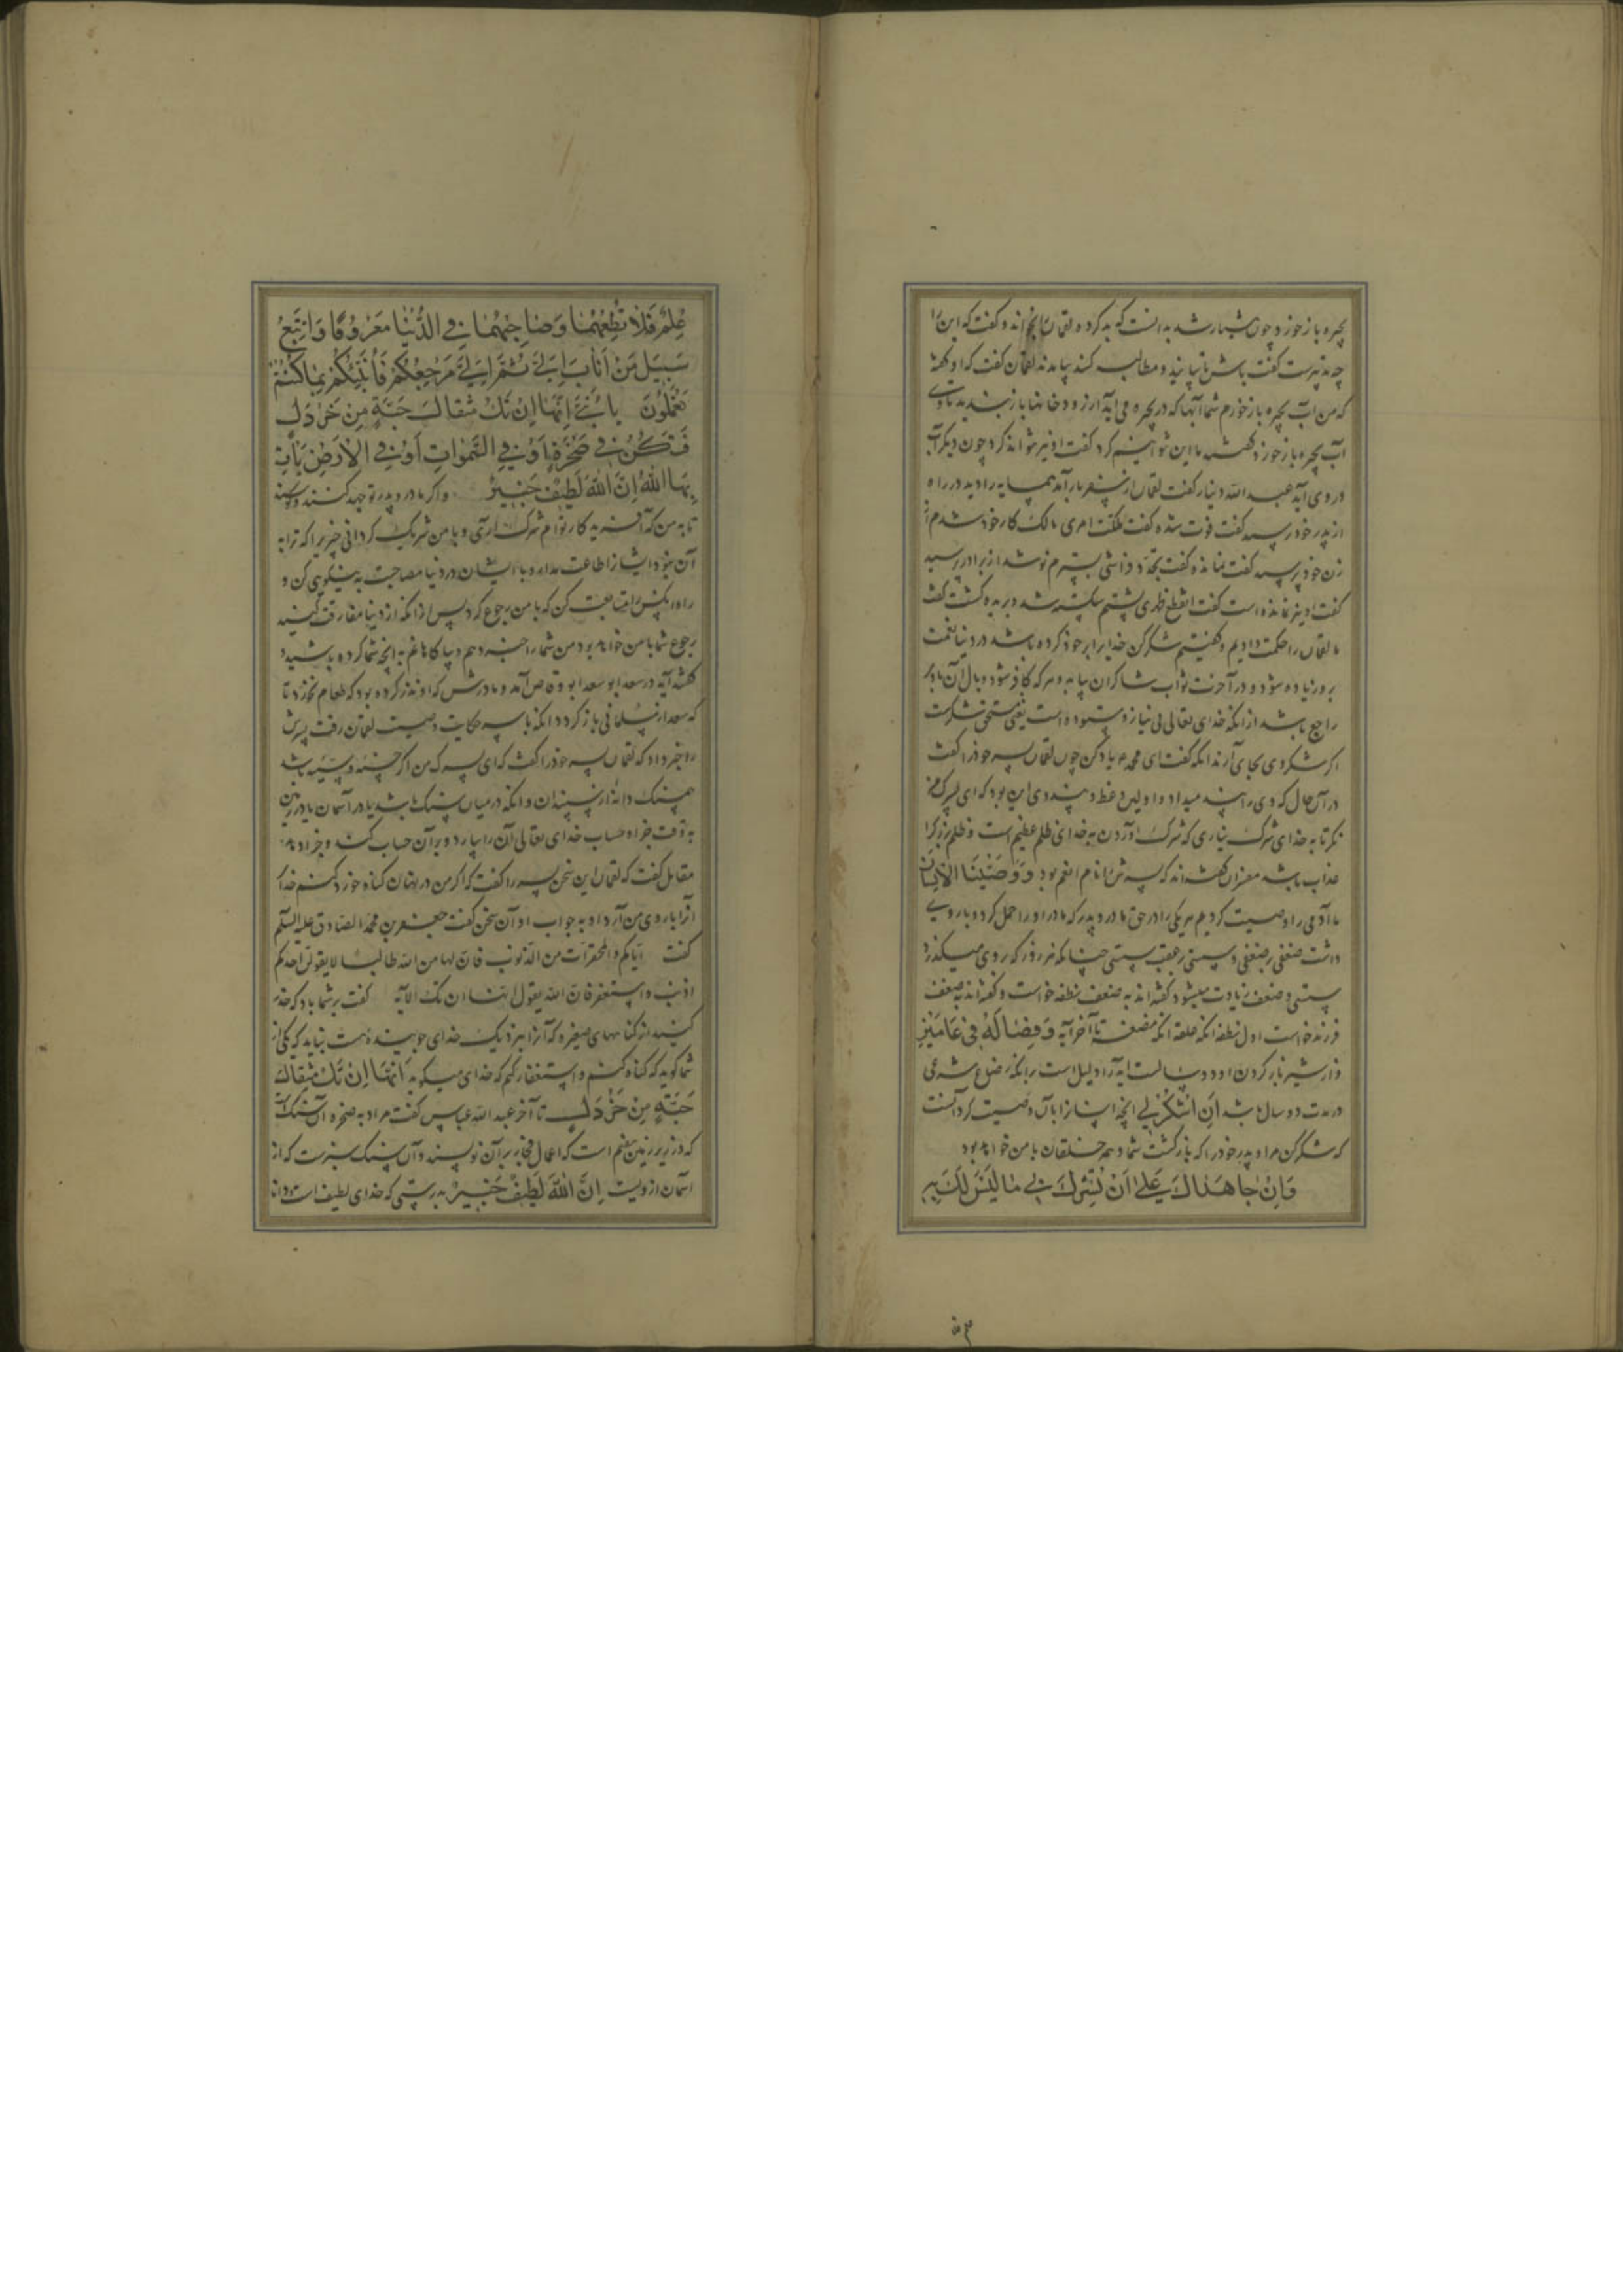 بحیره باز خورد چون هشیار شد بدانست که بد کرد و لقمان را بخواند و گفت که این را
چه تدبیرست گفت باش تا بیایند و مطالبه کنند بیامدند لقمان گفت که او گفته
که من آب بحیره باز خورم شما آبها که در بحیره می آید از رودخانها باز بندید تا وی
آب بحیره باز خورد گفتند ما این نتوانیم کرد گفت او نیز نتواند کرد چون دیگر آب
در وی آید عبد الله دینار گفت لقمان از سفر باز آمد همسایه را دید در راه
از پدر خود پرسید گفت فوت شده گفت ملکت امری مالک کار خود شدم از
زن خود پرسید گفت نمانده گفت تجدد فراشی بسترم نو شد از برادر پرسید
گفت او نیز نمانده است گفت انقطع ظهری پشتم شکسته شد و بریده گشت گفت
ما لقمان را حکمت دادیم و گفتیم شکر کن خدایرا
بروز زیاده شود و در آخرت ثواب شاکران بیابد و هر که کافر شود وبال آن باو
راجع باشد از انکه خدای تعالی بی نیاز و ستوده است یعنی مستحق شکرست
اگر شکر وی بجای آرند انکه گفت ای محمد یاد کن چون لقمان پسر خود را گفت
در آن حال که وی را پند میداد و اولین وعظ و پند وی این بود که ای پسرک من
نگر تا به خدای شرک نیاری که شرک آوردن به خدای ظلم عظیم است و ظلم بزرگ را
عذاب باشد مفسران گفته اند که پسرش را نام انعم بود وَوَصَّيْنَا الْاِنْسَانَ
ما آدمی را وصیت کردیم هر یکی را در حق مادر و پدر که مادر او را حمل کرد و بار وی
داشت ضعفی بر ضعفی و سستی بر عقب سستی چنانکه هر روز که بر وی میگذرد
سستی و ضعف زیادت میشود گفته اند به ضعف نطفه خواست و گفته اند به ضعف
فرزند خواست اول نطفه انکه علقه انکه مضغه تا آخر آیه وَفِصَالُهُ فِي عَامَيْنِ
و از شیر باز کردن او دو سالست آیه را دلیل است بر انکه رضاع شرعی
در مدت دو سال باشد اَنِ اشْكُرْ لِي انچه ایشان را بآن وصیت کرد آنست
که شکر کن مرا و پدر خود را که بازگشت شما و همه خلقان با من خواهد بود
وَاِنْ جَاهَدَاكَ عَلٰى اَنْ تُشْرِكَ بِي مَا لَيْسَ لَكَ بِهِ
عِلْمٌ فَلَا تُطِعْهُمَا وَصَاحِبْهُمَا فِي الدُّنْيَا مَعْرُوفًا وَاتَّبِعْ
سَبِيلَ مَنْ اَنَابَ اِلَيَّ ثُمَّ اِلَيَّ مَرْجِعُكُمْ فَاُنَبِّئُكُمْ بِمَا كُنْتُمْ
تَعْمَلُونَ يَا بُنَيَّ اِنَّهَا اِنْ تَكُ مِثْقَالَ حَبَّةٍ مِنْ خَرْدَلٍ
فَتَكُنْ فِي صَخْرَةٍ اَوْ فِي السَّمٰوَاتِ اَوْ فِي الْاَرْضِ يَأْتِ
بِهَا اللّٰهُ اِنَّ اللّٰهَ لَطِيفٌ خَبِيرٌ و اگر مادر و پدر توجهد کنند و کوشند
تا به من که آفریدکار توام شرک آری و با من شریک گردانی چیزیرا که ترا به
آن نبود ایشانرا طاعت مدار و با ایشان در دنیا مصاحبت به نیکویی کن و
راه آن کس را متابعت کن که با من رجوع کرد پس از انکه از دنیا مفارقت کنید
رجوع شما با من خواهد بود من شما را خبر دهم و بیاگاهانم به انچه شما کرده باشید
گفته آیه در سعد آمد و مادرش که او نذر کرده بود که طعام نخورد تا
که سعد از مسلمانی باز گردد انکه باسر حکایت وصیت لقمان رفت پسرش
را خبر داد که لقمان پسر خود را گفت که ای پسرک من اگر حسنه و سیئه باشد
همسنک دانه از سپندان و انکه در میان سنک باشد یا در آسمان یا در زمین
به وقت جزا و حساب خدای تعالی آن را بیارد و بر آن حساب کند و جزا دهد
مقاتل گفت که لقمان این سخن پسر را گفت که اگر من در نهان گناه خورد کنم خدا
آنرا با روی من آرد او به جواب او آن سخن گفت جعفر بن محمد الصادق علیه السلام
گفت ایاکم و المحقرات من الذنوب فان لها من الله طالبا لا یقولن احدکم
اذنب و استغفر فان الله یقول انها ان تک الآیه گفت بر شما باد که حذر
کنید از گناههای صغیره که آنرا بنزدیک خدای جوینده هست نباید که یکی از
شما گوید که گناه کنم و استغفار کنم که خدای میگوید اِنَّهَا اِنْ تَكُ مِثْقَالَ
حَبَّةٍ مِنْ خَرْدَلٍ تا آخر عبد الله عباس گفت مراد به صخره آن سنگ است
که در زیر زمین هفتم است که اعمال فجار بر آن نویسند و آن سنک سبزست که از
آسمان از ویست اِنَّ اللّٰهَ لَطِيفٌ خَبِيرٌ بدرستی که خدای لطیف است و دانا